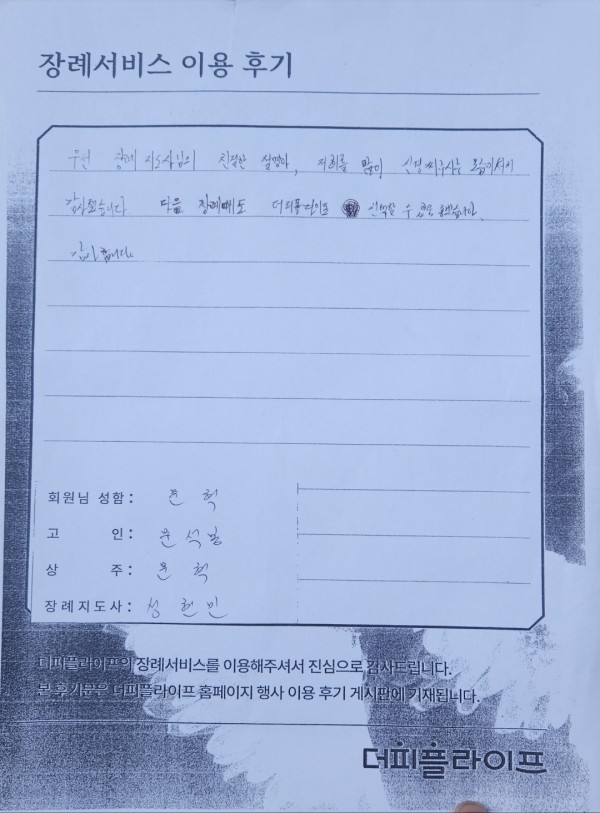 장례서비스 이용 후기
우선 장례지도사님의 친절한 설명과, 저희를 많이 신경써주시는 모습에서
감사했습니다 다음 장례때도 더피플라이프 선택할 수 있을
감사합니다.
회원님 성함 : 윤 혁
고 인 : 윤석
상 주 : 윤 혁
장례지도사 : 성현민
더피플라이프의 장례서비스를 이용해주셔서 진심으로 감사드립니다.
본 후기문은 더피플라이프 홈페이지 행사 이용 후기 게시판에 기재됩니다.
더피플라이프